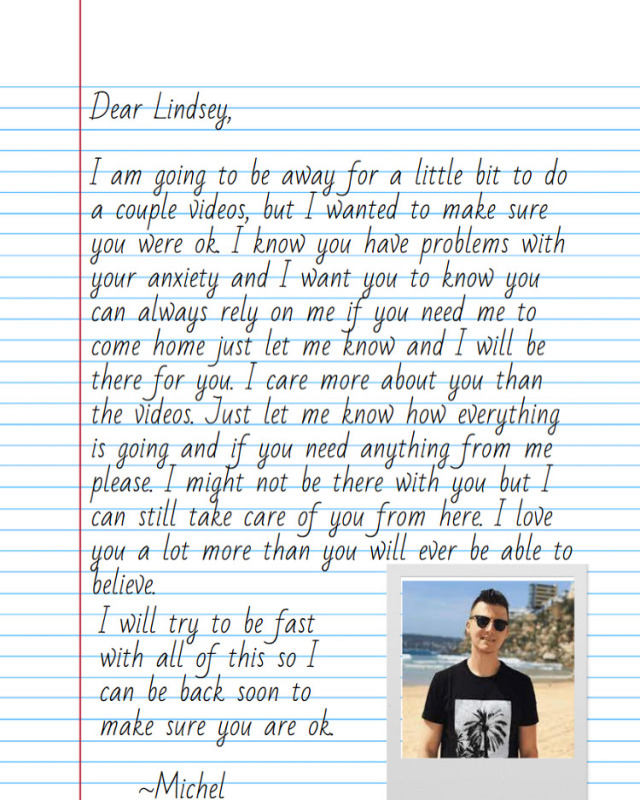 Dear Lindsey,
I am going to be away for a little bit to do
a couple videos, but I wanted to make sure
you were ok. I know you have problems with
your anxiety and I want you to know you
can always rely on me if you need me to
come home just let me know and I will be
there for you. I care more about you than
the videos. Just let me know how everything
is going and if you need anything from me
please. I might not be there with you but I
can still take care of you from here. I love
you a lot more than you will ever be able to
believe.
I will try to be fast
with all of this so I
can be back soon to
make sure you are ok.
~Michel